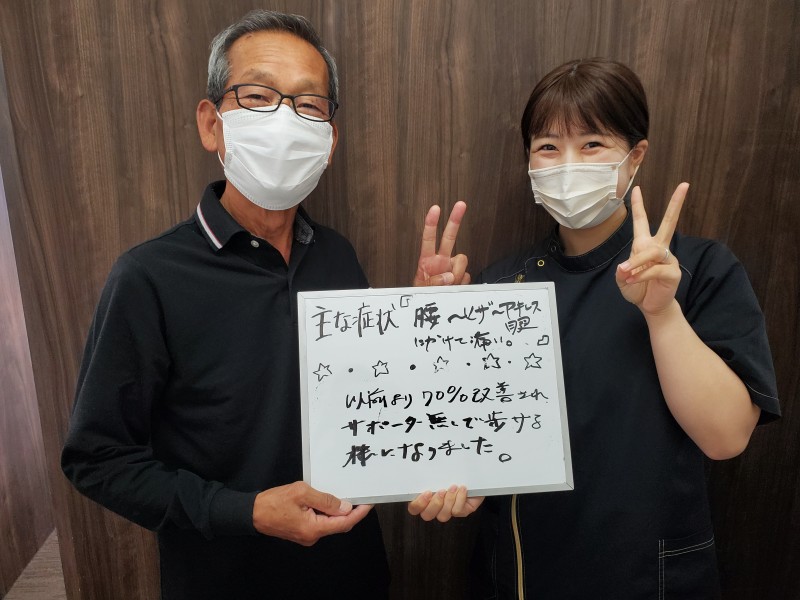 主な症状「腰〜ヒザ〜アキレス
腱
にかけて痛い。」
☆・☆・☆・☆・☆
以前より70%改善され
サポーター無しで歩ける
様になりました。